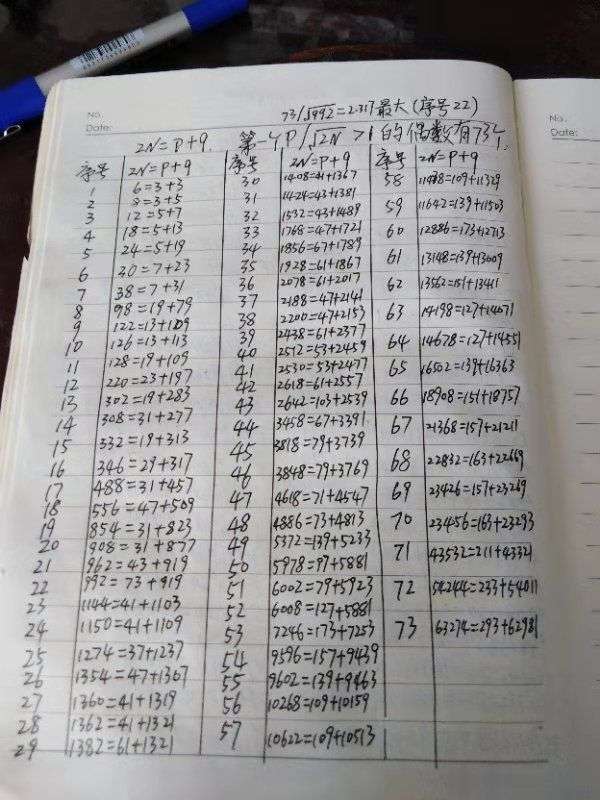 No.
Date:
73/√992=2.317最大(序号22)
2N=P+q. 第一个P/√2N>1的偶数有73个
No.
Date:
序号 2N=P+q
1 6=3+3
2 8=3+5
3 12=5+7
4 18=5+13
5 24=5+19
6 30=7+23
7 38=7+31
8 98=19+79
9 122=13+109
10 126=13+113
11 128=19+109
12 220=23+197
13 302=19+283
14 308=31+277
15 332=19+313
16 346=29+317
17 488=31+457
18 556=47+509
19 854=31+823
20 908=31+877
21 962=43+919
22 992=73+919
23 1144=41+1103
24 1150=41+1109
25 1274=37+1237
26 1354=47+1307
27 1360=41+1319
28 1362=41+1321
29 1382=61+1321
序号 2N=P+q
30 1408=41+1367
31 1424=43+1381
32 1532=43+1489
33 1768=47+1721
34 1856=67+1789
35 1928=61+1867
36 2078=61+2017
37 2188=47+2141
38 2200=47+2153
39 2438=61+2377
40 2512=53+2459
41 2530=53+2477
42 2618=61+2557
43 2642=103+2539
44 3458=67+3391
45 3818=79+3739
46 3848=79+3769
47 4618=71+4547
48 4886=73+4813
49 5372=139+5233
50 5978=97+5881
51 6002=79+5923
52 6008=127+5881
53 7246=173+7253
54 9596=157+9439
55 9602=139+9463
56 10268=109+10159
57 10622=109+10513
序号 2N=P+q
58 11438=109+11329
59 11642=139+11503
60 12886=173+12713
61 13148=139+13009
62 13562=151+13411
63 14198=127+14071
64 14678=127+14551
65 16502=139+16363
66 18908=151+18757
67 21368=157+21211
68 22832=163+22669
69 23426=157+23269
70 23456=163+23293
71 43532=211+43321
72 54244=233+54011
73 63274=293+62981